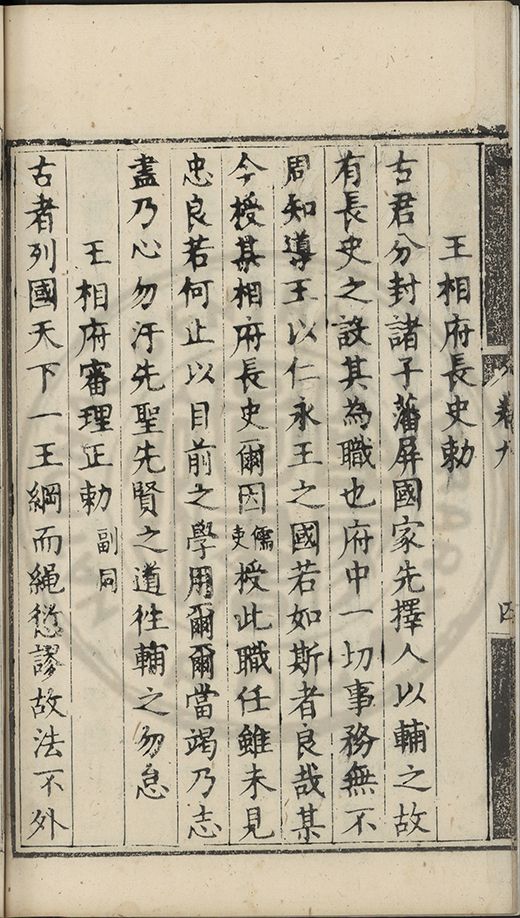 王相府長史勅
古君分封諸子藩屏國家先擇人以輔之故
有長史之設其為職也府中一切事務無不
周知導王以仁永王之國若如斯者良哉某
今授某相府長史爾因儒吏授此職任雖未見
忠良若何止以目前之學用爾爾當竭乃志
盡乃心勿汙先聖先賢之道往輔之勿怠
王相府審理正勅副同
古者列國天下一王綱而繩愆謬故法不外
卷九
四